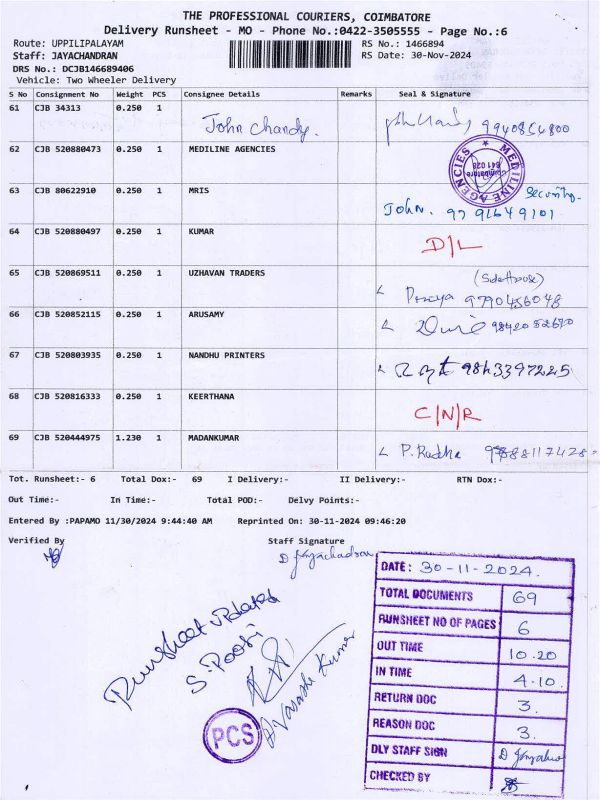 THE PROFESSIONAL COURIERS, COIMBATORE
Delivery Runsheet - MO - Phone No.:0422-3505555 - Page No.:6
Route: UPPILIPALAYAM
RS No.: 1466894
Staff: JAYACHANDRAN
RS Date: 30-Nov-2024
DRS No.: DCJB146689406
Vehicle: Two Wheeler Delivery
S No Consignment No Weight PCS Consignee Details Remarks Seal & Signature
61 CJB 34313 0.250 1 John Chandy. 9940854800
62 CJB 520880473 0.250 1 MEDILINE AGENCIES
MEDILINE AGENCIES Coimbatore 641 028
63 CJB 80622910 0.250 1 MRIS Security
John. 97 91649101
64 CJB 520880497 0.250 1 KUMAR D/L
65 CJB 520869511 0.250 1 UZHAVAN TRADERS
9790456048
66 CJB 520852115 0.250 1 ARUSAMY
67 CJB 520803935 0.250 1 NANDHU PRINTERS
68 CJB 520816333 0.250 1 KEERTHANA C/N/R
69 CJB 520444975 1.230 1 MADANKUMAR P. Radha
Tot. Runsheet:- 6 Total Dox:- 69 I Delivery:- II Delivery:- RTN Dox:-
Out Time:- In Time:- Total POD:- Delvy Points:-
Entered By :PAPAMO 11/30/2024 9:44:40 AM Reprinted On: 30-11-2024 09:46:20
Verified By Staff Signature
Runsheet updated
S. Poosi
PCS
DATE: 30-11-2024.
TOTAL DOCUMENTS 69
RUNSHEET NO OF PAGES 6
OUT TIME 10.20
IN TIME 4.10.
RETURN DOC 3.
REASON DOC 3.
DLY STAFF SIGN
CHECKED BY